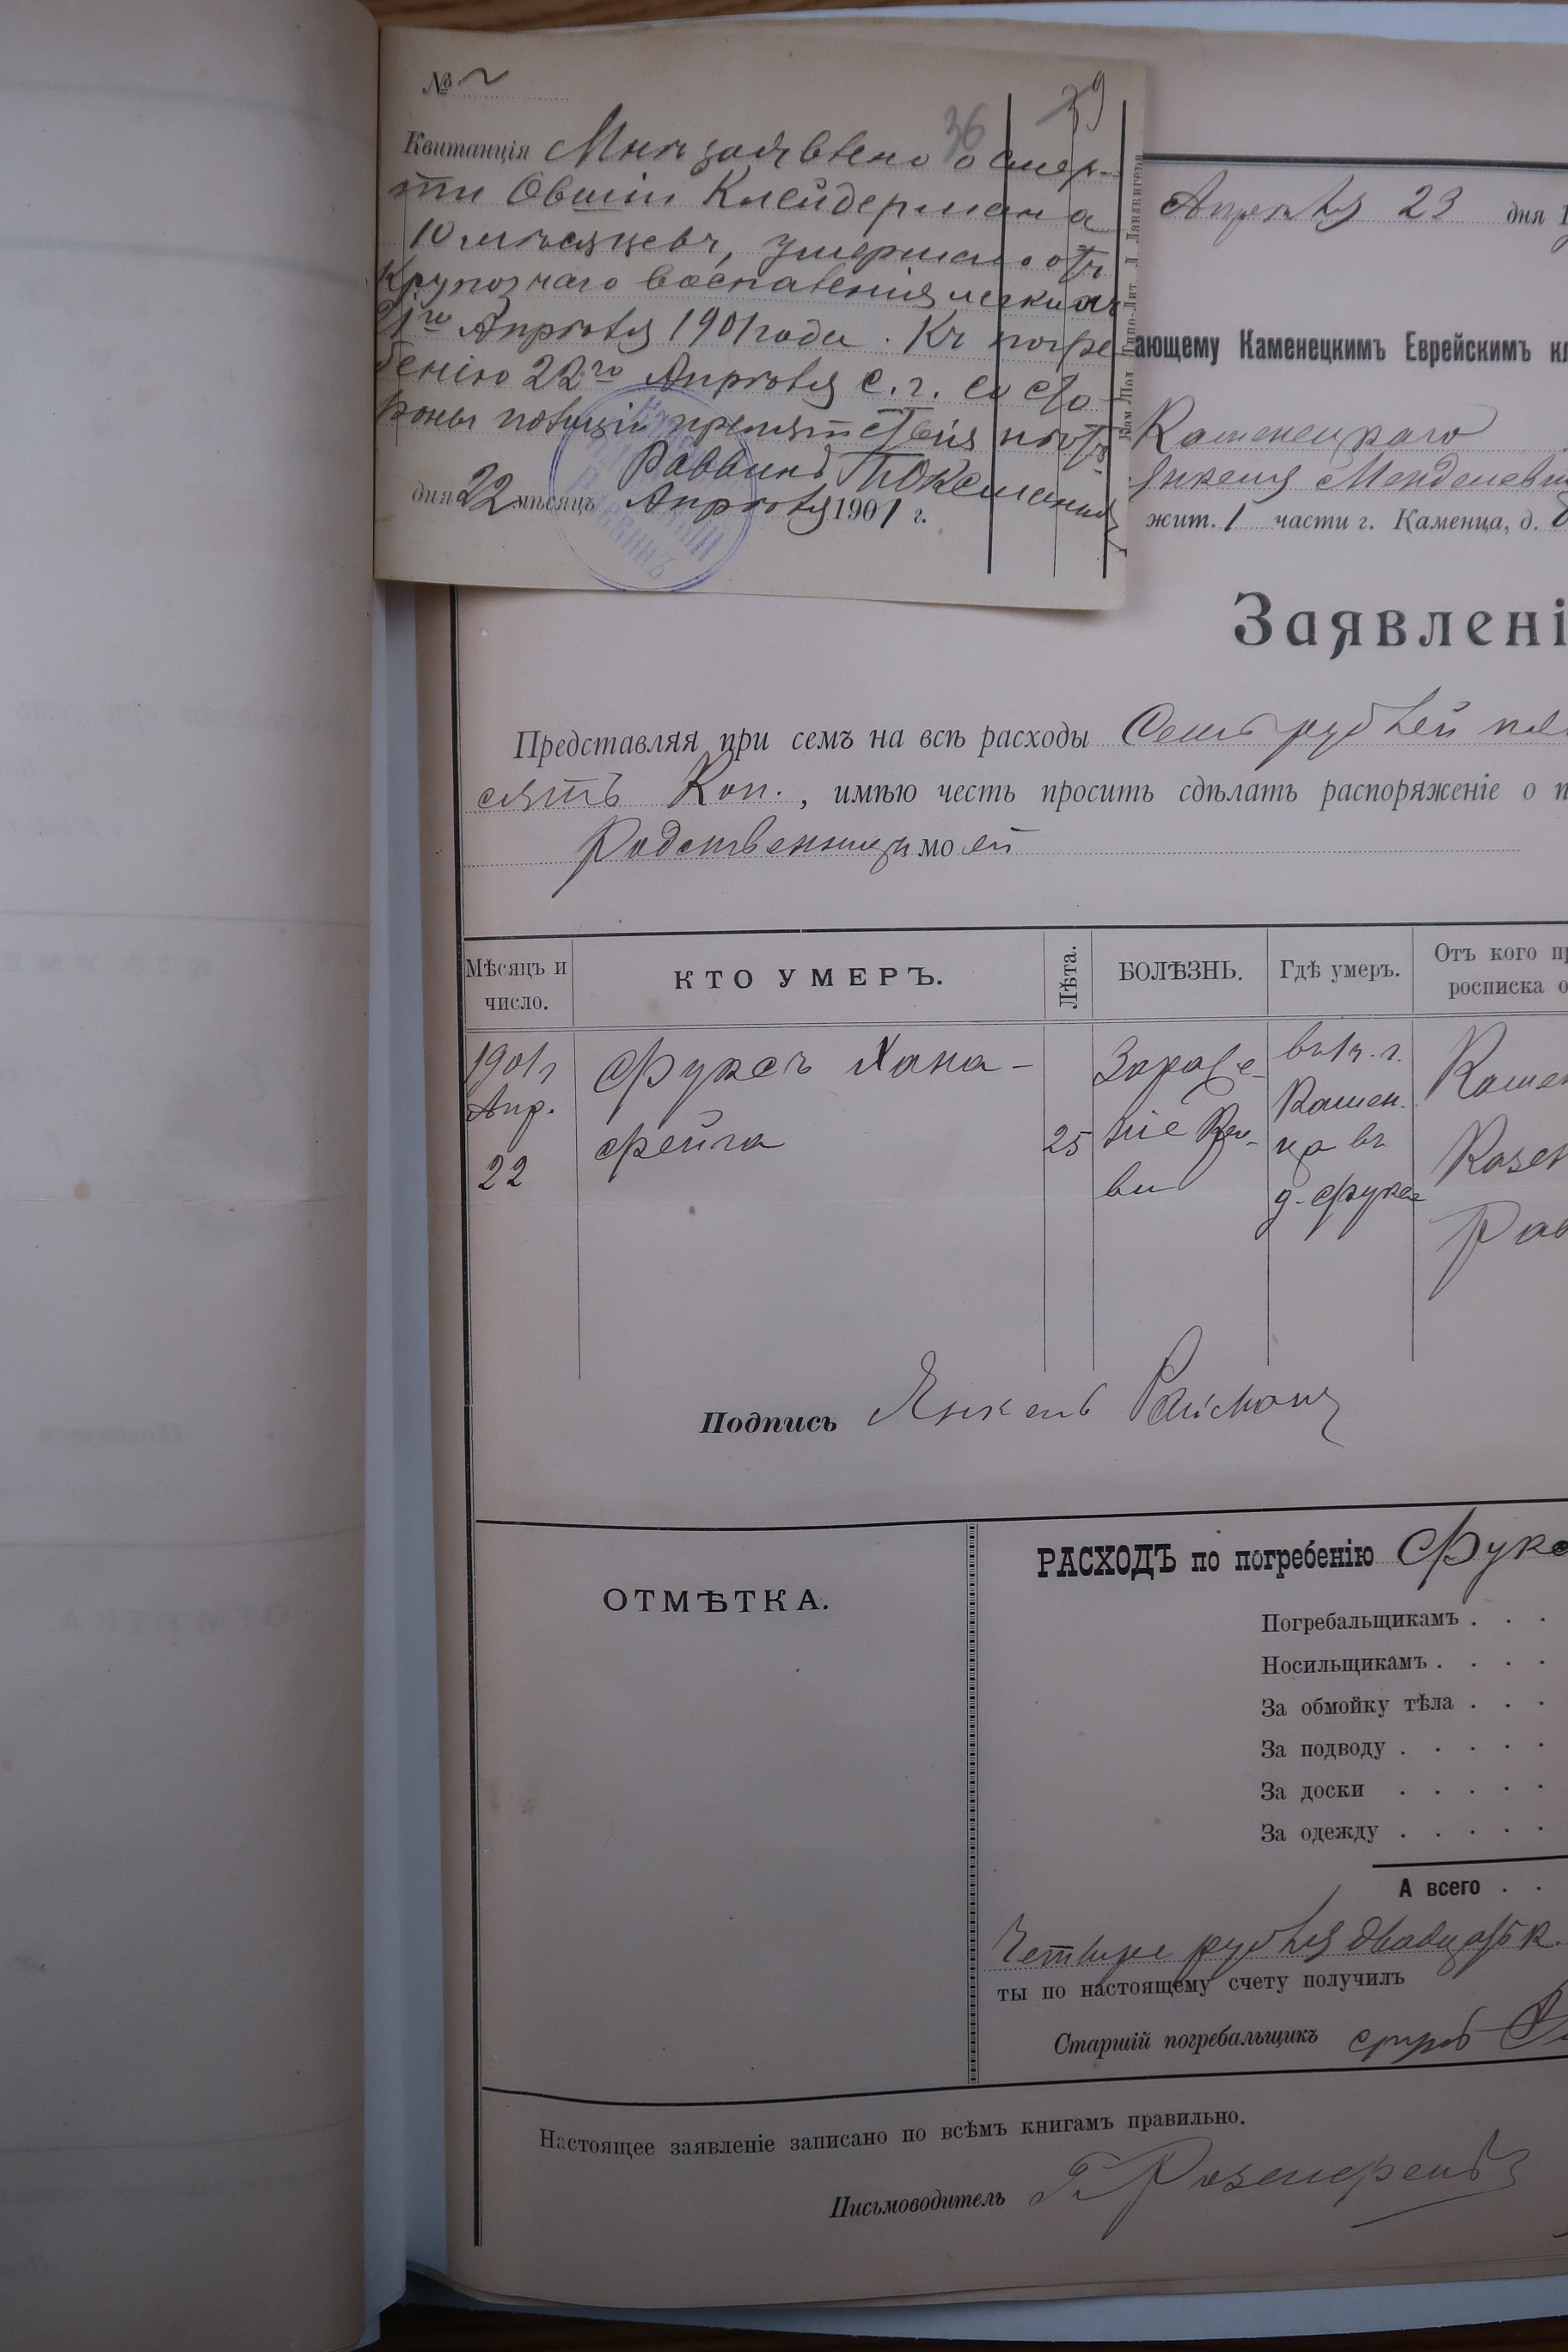 №
36
39
Квитанція Мнѣ заявлено о смер-
ти Овшіи Клейдермана
10 мѣсяцевъ, умершаго отъ
крупознаго воспаленія легкихъ
21го Апрѣля 1901 года. Къ погре
бенію 22го Апрѣля с. г. со сто
роны полиціи препятствія нѣтъ
Раввинъ
дня 22 мѣсяцъ Апрѣля 1901 г.
Кам.-Под. Типо-Лит. Л. Ландвигера
Апрѣля 23 дня 1
ающему Каменецкимъ Еврейскимъ кл
Каменецкаго
Янкеля Менделеви
жит. 1 части г. Каменца, д.
Заявлені
Представляя при семъ на всѣ расходы Семь рублей пя
сятъ Коп., имѣю честь просить сдѣлать распоряженіе о п
Родственницы моей
Мѣсяцъ и число.
КТО УМЕРЪ.
Лѣта.
БОЛѢЗНЬ.
Гдѣ умеръ.
Отъ кого пр
росписка о
1901 г
Апр.
22
Фуксъ Хана-
фейга
25
Зараже-
ніе Кро-
ви
въ г.
Камен.
ца въ
д. Фукса
Камен
Казен
Рав
Подпись Янкель Райсман
ОТМѢТКА.
РАСХОДЪ по погребенію Фукс
Погребальщикамъ . . .
Носильщикамъ . . . .
За обмойку тѣла . . .
За подводу . . . . .
За доски . . . . .
За одежду . . . . .
А всего . .
Четыре рубля двадцать к.
ты по настоящему счету получилъ
Старшій погребальщикъ
Настоящее заявленіе записано по всѣмъ книгамъ правильно.
Письмоводитель Г. Розенфельд